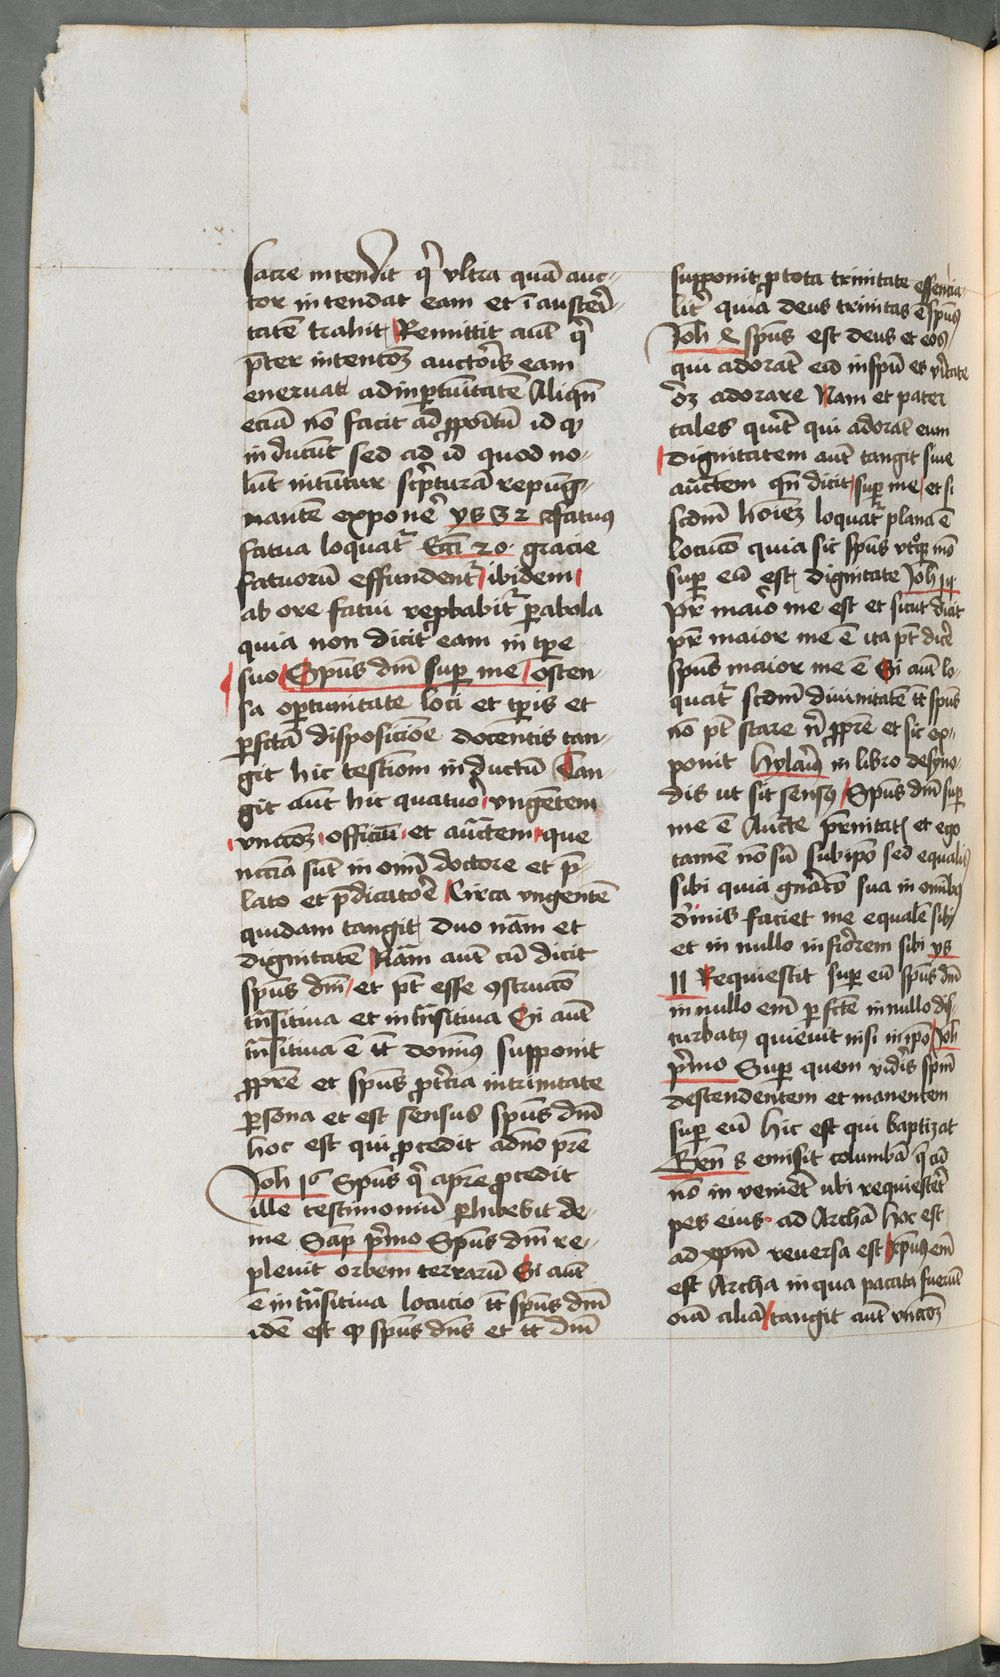 sacre intendit q̃ vltra quã auc-
tor intendat eam et ĩ austeri-
tatẽ trahit Remittit aut̃ q̃
p̃ter intencōȝ auctoris eam
eneruat ad inꝑtũitatẽ Aliqñ
eciã nõ facit ad ꝓpoĩtũ id ꝙ
inducũt sed ad id quod no-
lũt intũtur sc̃pturã repug-
nantẽ exponẽ ys 32 fatuꝯ
fatua loquat̃ Ecci 20 gracie
fatuorũ effundent̃ ibidem
ab ore fatui reprobabit̃ ꝑabola
quia non dicit eam in tp̃e
suo Sp̃us dñi suꝑ me osten-
sa oꝑtunitate loci et tp̃is et
ꝑfc̃tã disposicõe docentis tan-
git hic testiom̃ inductũ Tan-
git aũt hic quatuor vngẽtem
vnctōȝ officiũ et auc̃tem que
nc̃c̃ia sũt in om̃i doctore et p̃-
lato et p̃dicatorẽ Circa vngentẽ
quidam tangit duo nãm et
dignitatẽ Nãm aut̃ cũ dicit
sp̃us dñi et pt̃ esse ꝯstructõ
tñsitiua et intñsitiua Si aut̃
tñsitiua ẽ tt̃ dominꝯ supponit
ꝓprẽ et sp̃us ꝓ tc̃ia in trinitate
ꝑsona et est sensus sp̃us dñi
hoc est qui ꝓcedit a dño pr̃e
Joh 16 Sp̃us q̃ a pr̃e ꝓcedit
ille testimoniũ ꝑhibebit de
me Sap p̃mo Sp̃us dñi re-
pleuit orbem terrarũ Si aut̃
ẽ intñsitiua locucio tt̃ sp̃us dñi
idẽ est ꝙ sp̃us dñs et tt̃ dñi
supponit ꝓ tota trinitate essencia-
lit̃ quia deus trinitas ẽ sp̃us
Joh 4 sp̃us est deus et eos
qui adorãt eũ in sp̃u et v̓itate
oȝ adorare Nam et pater
tales querit qui adorãt eum
dignitatem aut̃ tangit siue
auc̃tem qñ dicit suꝑ me et si
scd̃m hoĩeȝ loquat̃ plana ẽ
locucõ quia sic sp̃us vtiqꝫ nõ
suꝑ eũ est dignitate Joh 14
pr̃ maior me est et sicut dicit
pr̃ maior me ẽ ita pt̃ dicẽ
sp̃us maior me ẽ Si aut̃ lo-
quat̃ scd̃m diuinitatẽ tt̃ sp̃us
nõ pt̃ stare ñ ꝓprẽ et sic ex-
ponit hylariꝯ in libro de syno-
dis ut sit sensꝯ Sp̃us dñi suꝑ
me ẽ Auctẽ p̃rnitatis et ego
tamẽ nõ sũ sub ip̃o sed equalis
sibi quia gñacõ sua in om̃ibꝫ
diuinis faciet me equalẽ sibi
et in nullo inferiorem sibi ys
11 Requiescit suꝑ eũ sp̃us dñi
in nullo em̃ ꝑfc̃tẽ in nullo dis-
turbatꝯ quieuit nisi in ip̃o Joh
p̃mo Suꝑ quem vidris sp̃m
descendentem et manentem
suꝑ eũ hic est qui baptizat
Gen̄ 8 emisit columbã q̃ cũ
nõ inuenirẽt ubi requiescẽt
pes eius ad Archã hoc est
ad xp̃m reuersa est xp̃us em̃
est Archa in qua pacata fuerũt
oĩa alia tangit aut̃ vnctōȝ